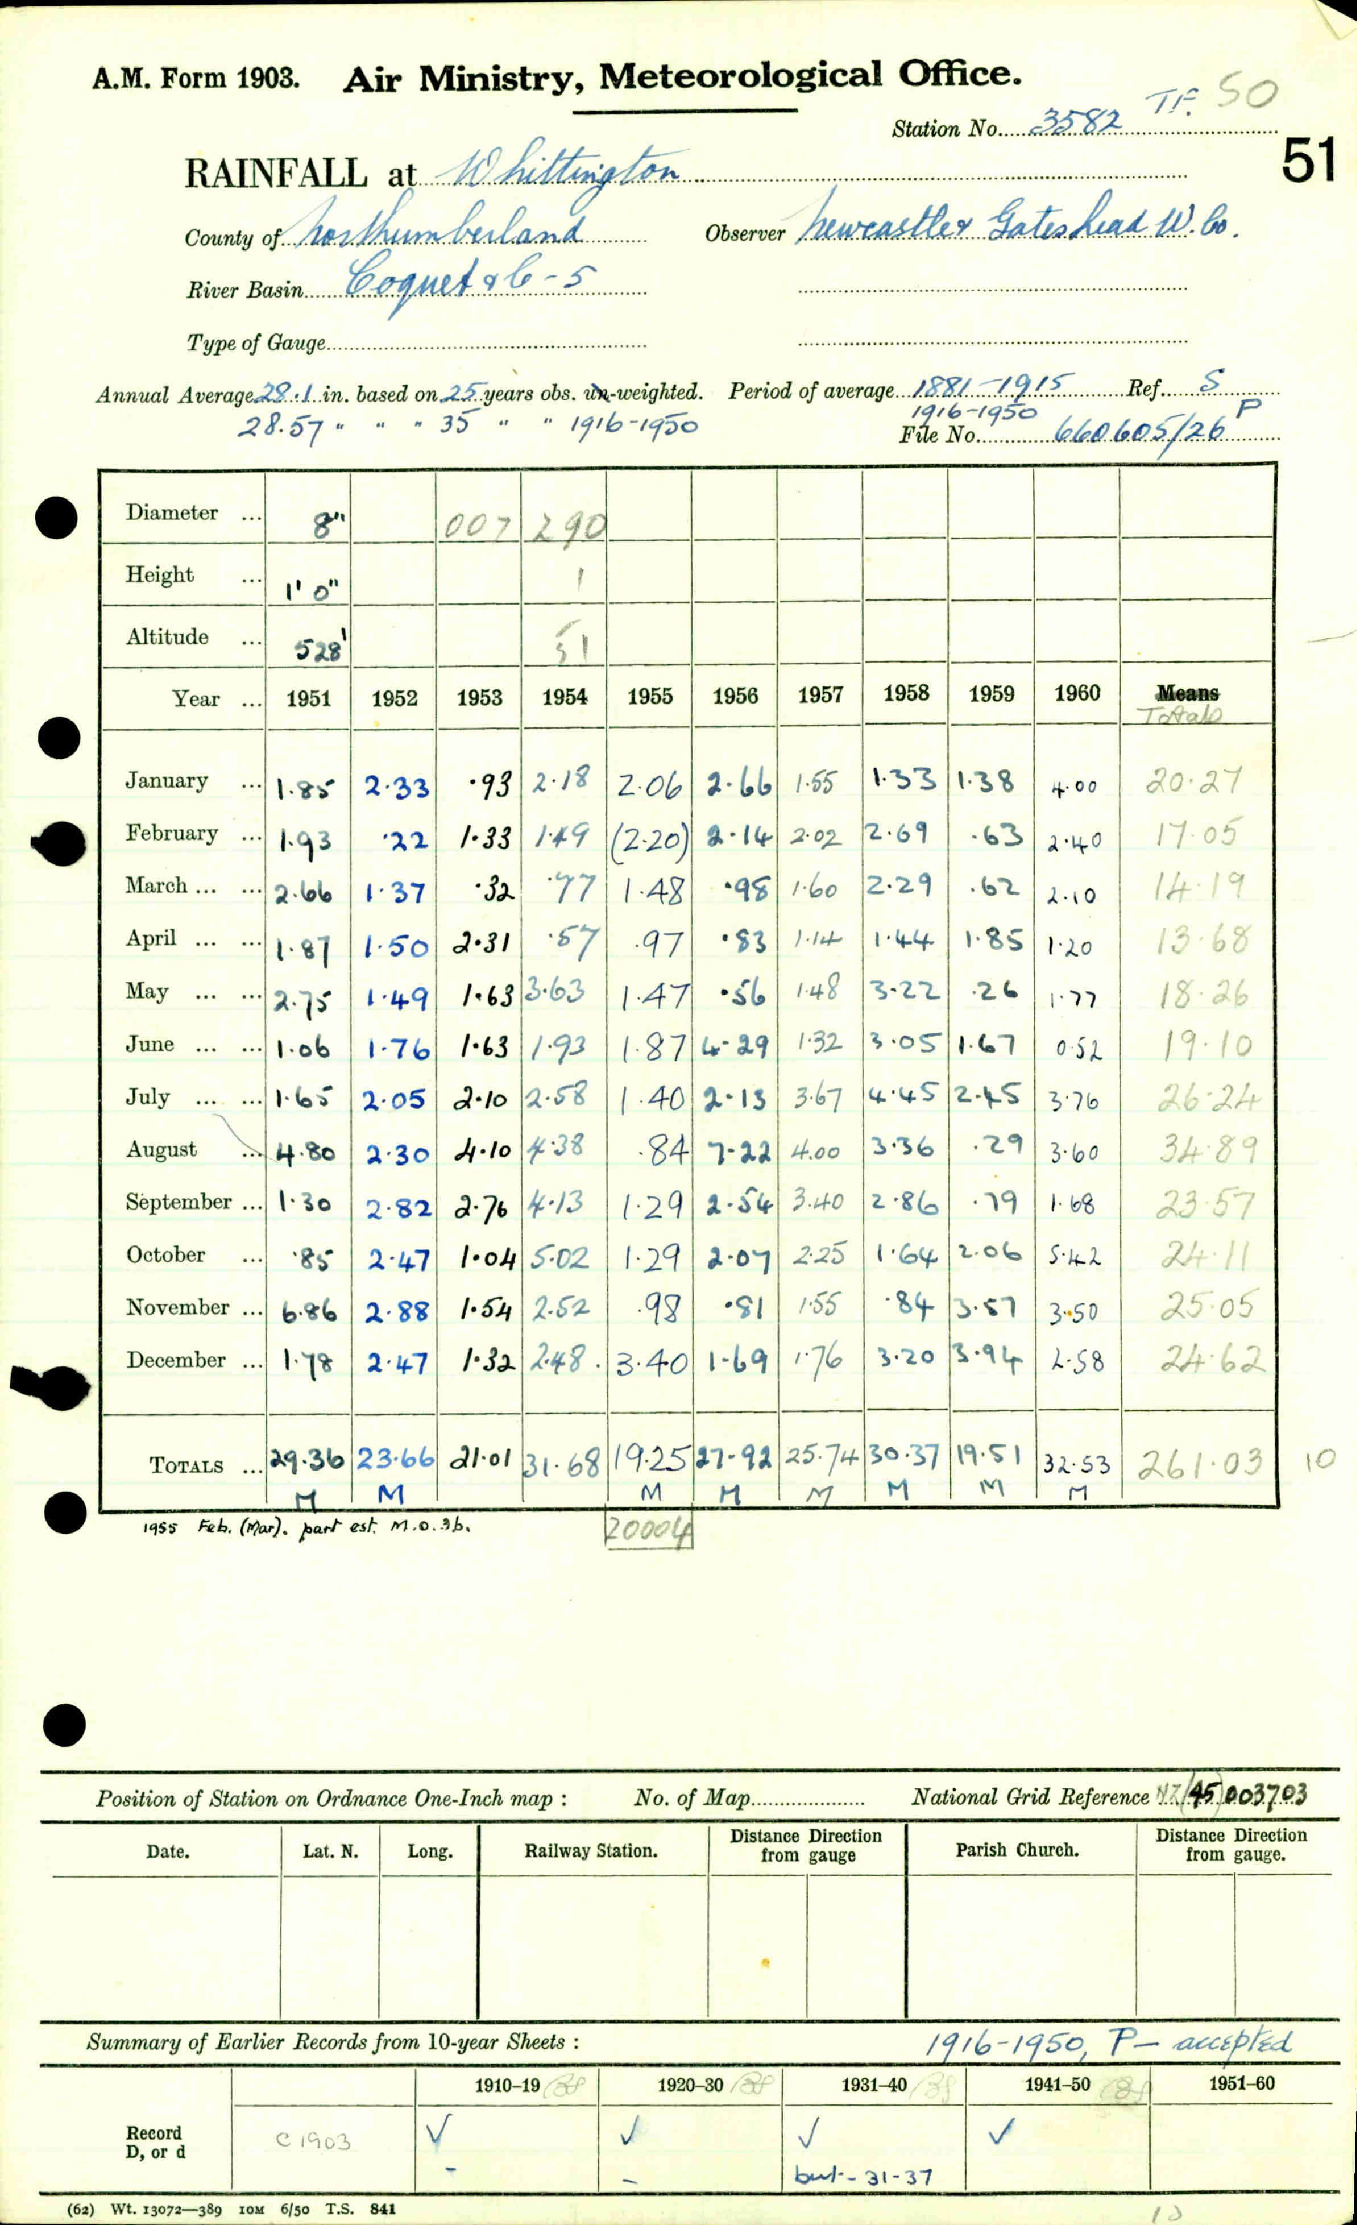 A.M. Form 1903. Air Ministry, Meteorological Office.
TF. 50
Station No. 3582
51
RAINFALL at Whittington
County of Northumberland Observer Newcastle & Gateshead W. Co.
River Basin Coquet & C-5
Type of Gauge
Annual Average 28.1 in. based on 25 years obs. un-weighted. Period of average 1881-1915 Ref. S
28.57 " " " 35 " " 1916-1950 1916-1950 P
File No. 660605/26
Diameter ... 8" 007 290
Height ... 1' 0" 1
Altitude ... 528' 51
Year ... 1951 1952 1953 1954 1955 1956 1957 1958 1959 1960 Means
Totals
January ... 1.85 2.33 .93 2.18 2.06 2.66 1.55 1.33 1.38 4.00 20.27
February ... 1.93 .22 1.33 1.49 (2.20) 2.14 2.02 2.69 .63 2.40 17.05
March ... ... 2.66 1.37 .32 .77 1.48 .98 1.60 2.29 .62 2.10 14.19
April ... ... 1.87 1.50 2.31 .57 .97 .83 1.14 1.44 1.85 1.20 13.68
May ... ... 2.75 1.49 1.63 3.63 1.47 .56 1.48 3.22 .26 1.77 18.26
June ... ... 1.06 1.76 1.63 1.93 1.87 4.29 1.32 3.05 1.67 0.52 19.10
July ... ... 1.65 2.05 2.10 2.58 1.40 2.13 3.67 4.45 2.45 3.76 26.24
August ... 4.80 2.30 4.10 4.38 .84 7.22 4.00 3.36 .29 3.60 34.89
September ... 1.30 2.82 2.76 4.13 1.29 2.54 3.40 2.86 .79 1.68 23.57
October ... .85 2.47 1.04 5.02 1.29 2.07 2.25 1.64 2.06 5.42 24.11
November ... 6.86 2.88 1.54 2.52 .98 .81 1.55 .84 3.57 3.50 25.05
December ... 1.78 2.47 1.32 2.48 3.40 1.69 1.76 3.20 3.94 2.58 24.62
TOTALS ... 29.36 23.66 21.01 31.68 19.25 27.92 25.74 30.37 19.51 32.53 261.03 10
M M M M M M M M
1955 Feb. (Mar). part est. M.O.3b. 20004
Position of Station on Ordnance One-Inch map : No. of Map National Grid Reference NZ (45) 003703
Date. Lat. N. Long. Railway Station. Distance from gauge Direction Parish Church. Distance from gauge. Direction
Summary of Earlier Records from 10-year Sheets : 1916-1950, P - accepted
1910–19 1920–30 1931–40 1941–50 1951–60
Record D, or d C 1903 ✓ ✓ ✓ ✓
- - but - 31-37
(62) Wt. 13072—389 10M 6/50 T.S. 841
10